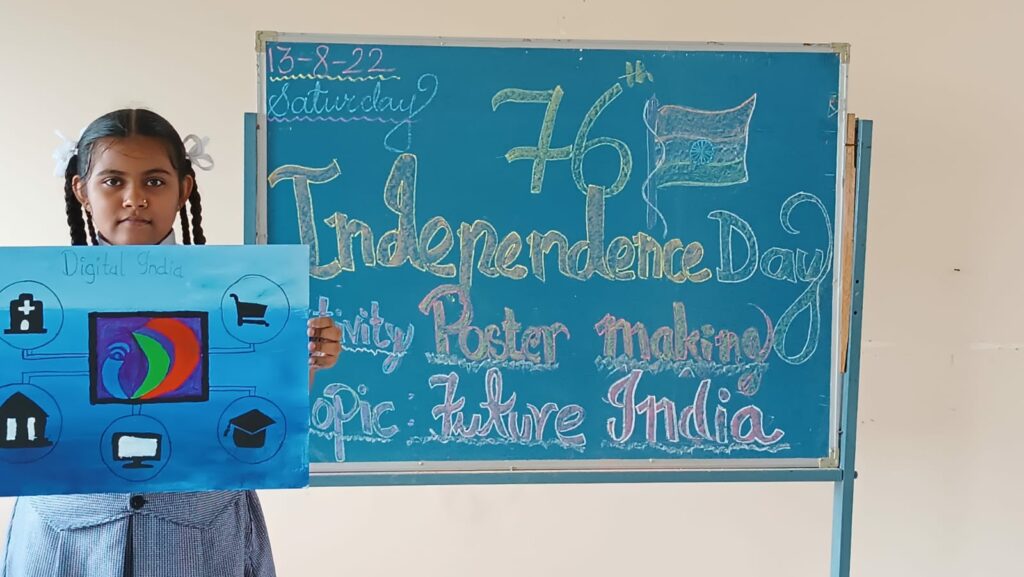 13-8-22
Saturday
76th
Independence Day
tivity Poster making
opic: Future India
Digital India